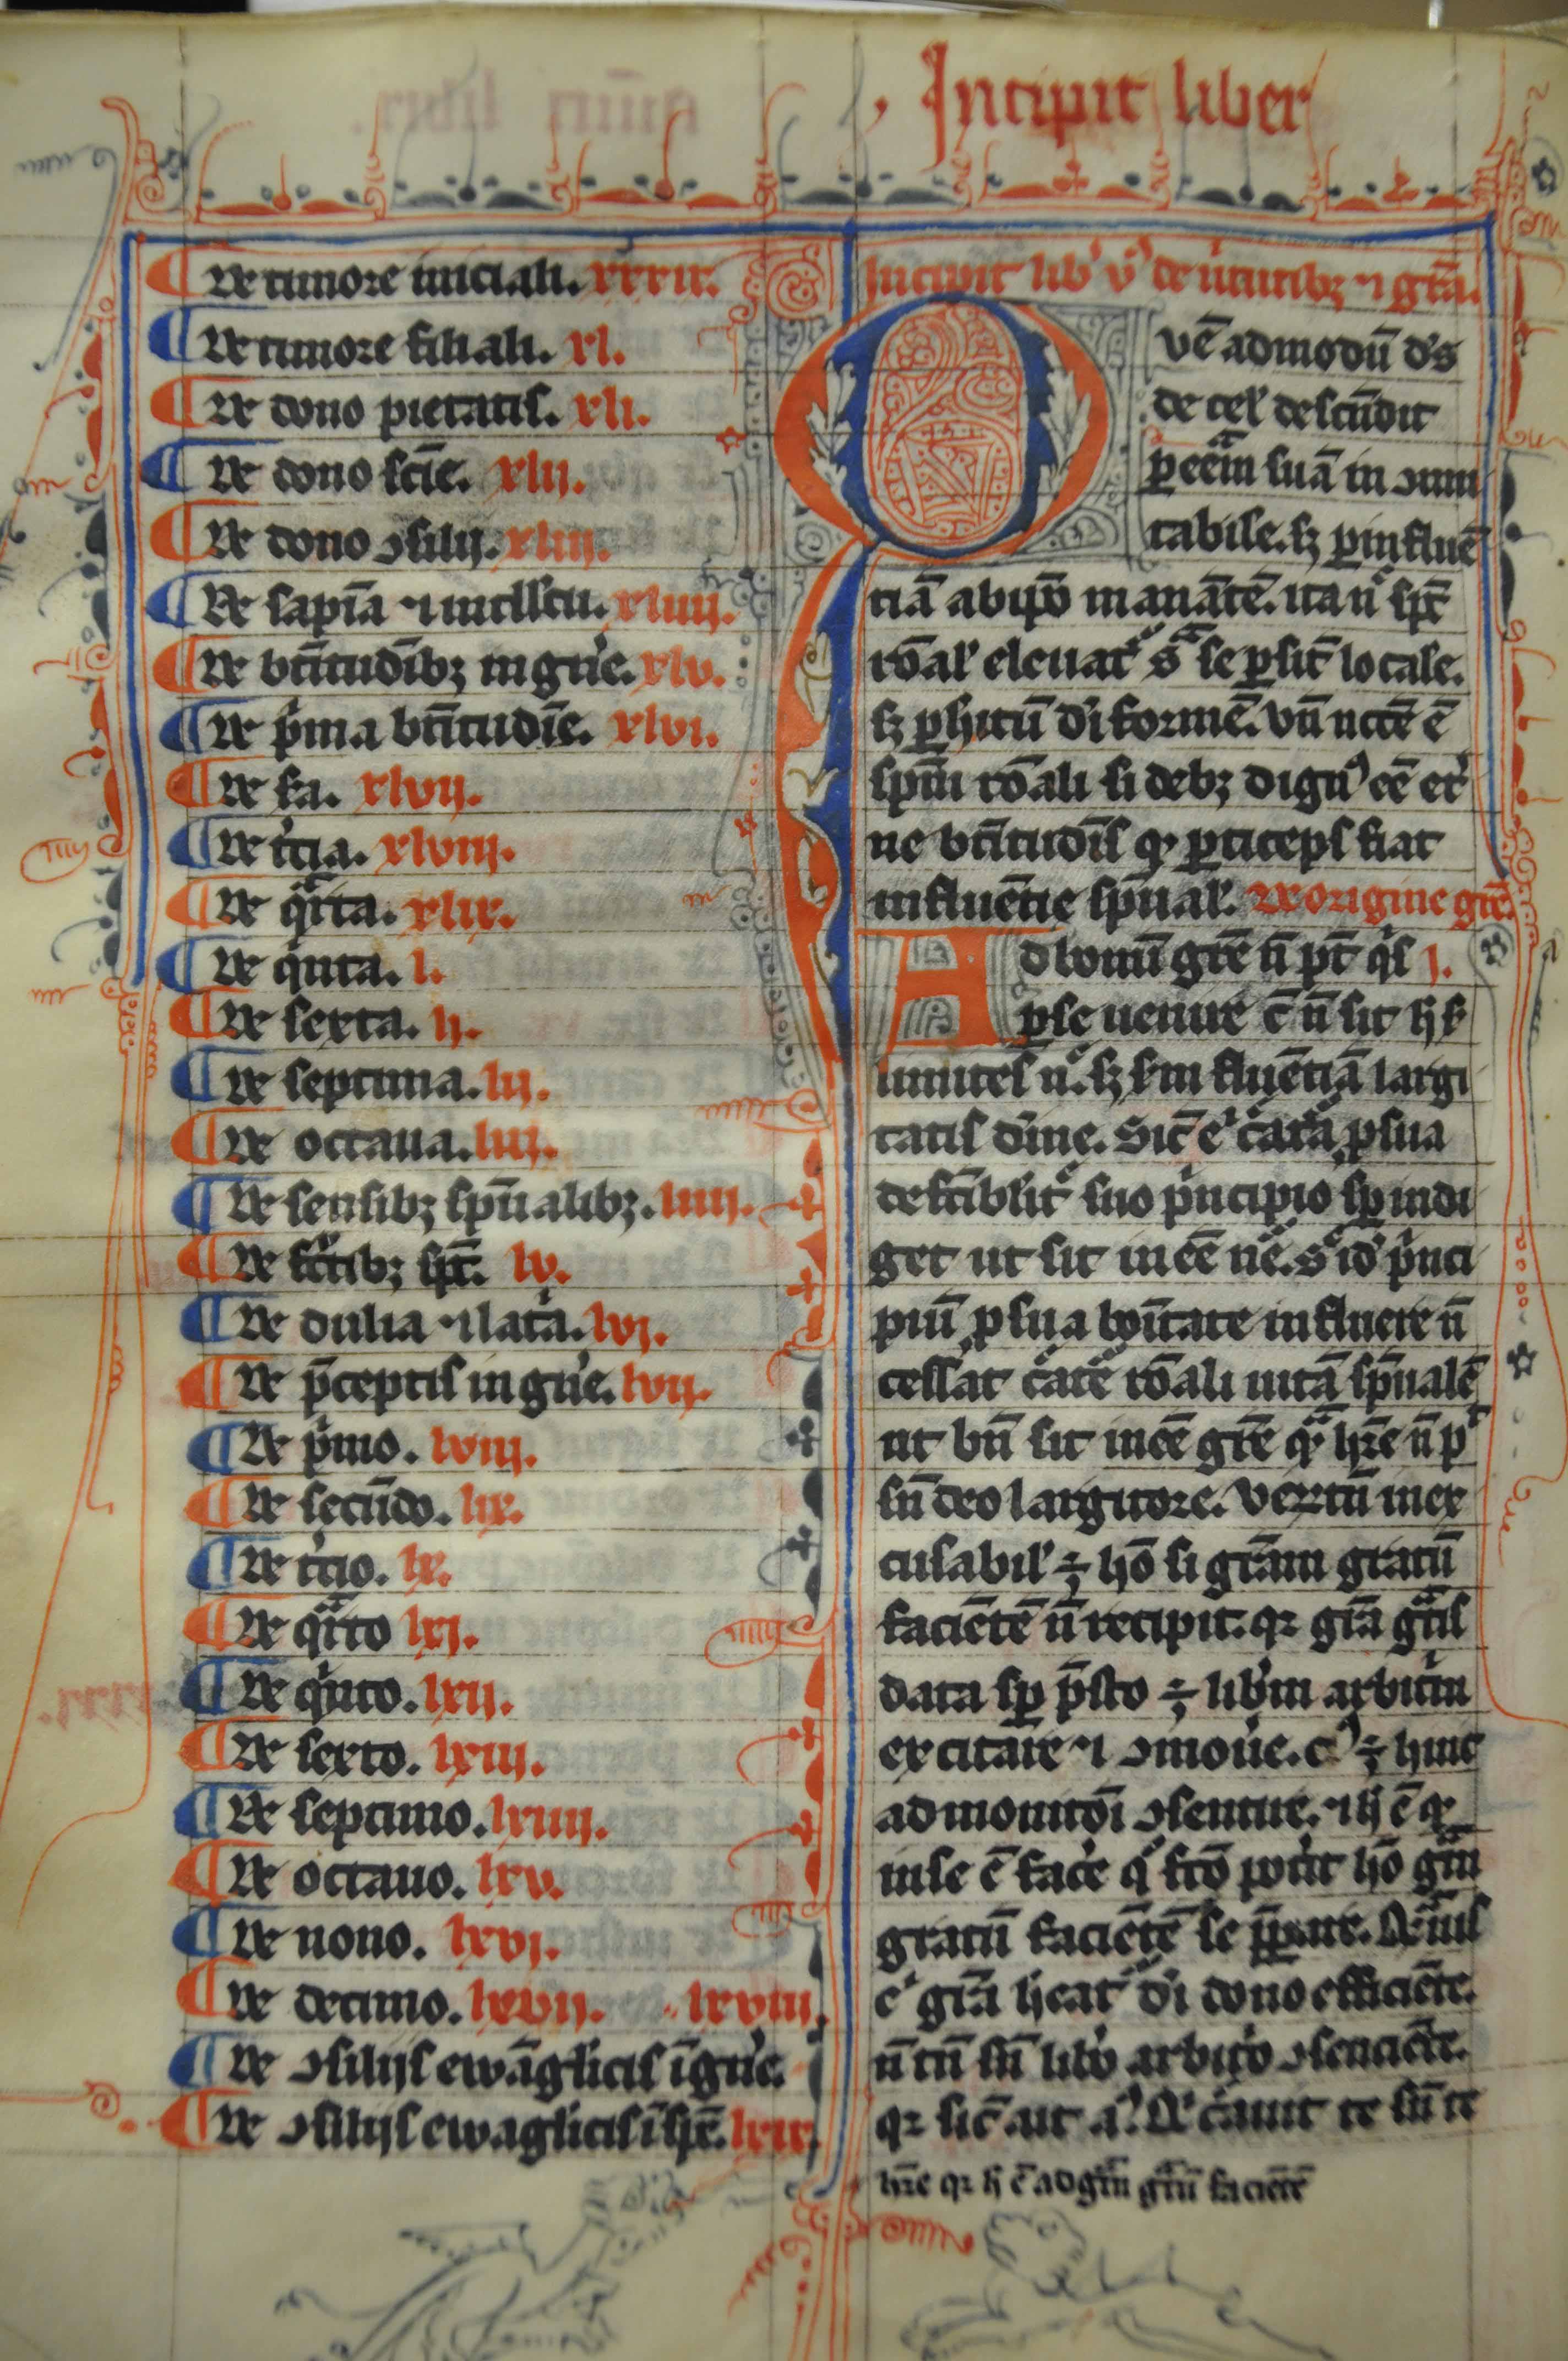 Incipit liber
De timore iniciali. xxxix.
De timore filiali. xl.
De dono pietatis. xli.
De dono scīe. xlii.
De dono ꝯsilij. xliii.
De sapīa ⁊ intllc̄u. xliiii.
De bt̄itudīibꝫ in gn̄e. xlv.
De p̓ma bt̄itudīe. xlvi.
De s̄a. xlvii.
De t̓cia. xlviii.
De qͣrta. xlix.
De qͥnta. l.
De sexta. li.
De septima. lii.
De octaua. liii.
De sensibꝫ sp̄ualibꝫ. liiii.
De fc̄tibꝫ sp̄c. lv.
De dulia ⁊ lat̓a. lvi.
De p̄ceptis in gn̄e. lvii.
De p̓mo. lviii.
De secūdo. lix.
De t̓cio. lx.
De qͣrto lxi.
De qͥnto. lxii.
De sexto. lxiii.
De septimo. lxiiii.
De octauo. lxv.
De nono. lxvi.
De decimo. lxvii. lxviii.
De ꝯsilijs ewāg̅licis ī gn̄e.
De ꝯsilijs ewāg̅licis ī sp̄e. lxix.
Incipit lib̓ v̓ de ũtutibꝫ ⁊ gr̄a.
Quē admodū d̓s
de cel̓ descēdit
ꝑ eēm suā in ꝯmu
tabilē. sꝫ ꝑ influē
tiā ab ip̄o manātē. ita nͦ sp̄c
rōal̓ eleuat̓ sͣ se ꝑ sit̄ localē.
sꝫ ꝑ hitū d̓iformē. vn̄ nccē ē
sp̄ui rōali si debꝫ dignꝰ eē et̓
ne bt̄itudīs ꝙ ꝑticeps fiat
influētie sp̄ual̓. De origine gr̄e.
Ad bonū gr̄e n̄ pt̄ qͥs i.
ꝑ se uenire c̄ n̄ sit h̄ s̄
limites n̄. sꝫ s̄m fluētiā largi
tatis d̓ine. Sic̄ e̓ c̓at̓a ꝓ sua
defc̄ibl̓it̓ suo p̓ncipio sꝑ indi
get ut sit in eē nē. sͥ id̓ p̓nci
piū ꝓ sua bōitate influere n̄
cessat c̓at̓e rōali uitā sp̄ualē
ut bn̄ sit in eē gr̄e qͣ h̄re n̄ pͭ
sn̄ deo largitore. Vertū inex
cusabil̓ ÷ hō si gr̄am gratū
faciētē n̄ recipit. qꝛ gr̄a gͣtis
data sꝑ p̄sto ÷ lib̓m arbit̓m
excitare ⁊ ꝯmoue̓. cꝰ ÷ huic
admonitōi ꝯsentire. ⁊ h̄ ē ꝙ
in se ē face̓ qͦ fc̄o pot̓it hō gr̄am
gratū faciētē se p̄ꝑare. Qͣmuis
e̓ gr̄a h̄eat̓ d̓i dono efficiēte.
n̄ tn̄ sn̄ lib̓o arbit̓o ꝯsenciēte.
qꝛ sic̄ ait aꝰ. Qͥ c̓auit te sn̄ te
h̄re qꝛ h̄ ē ad gr̄am gͣtū faciētē